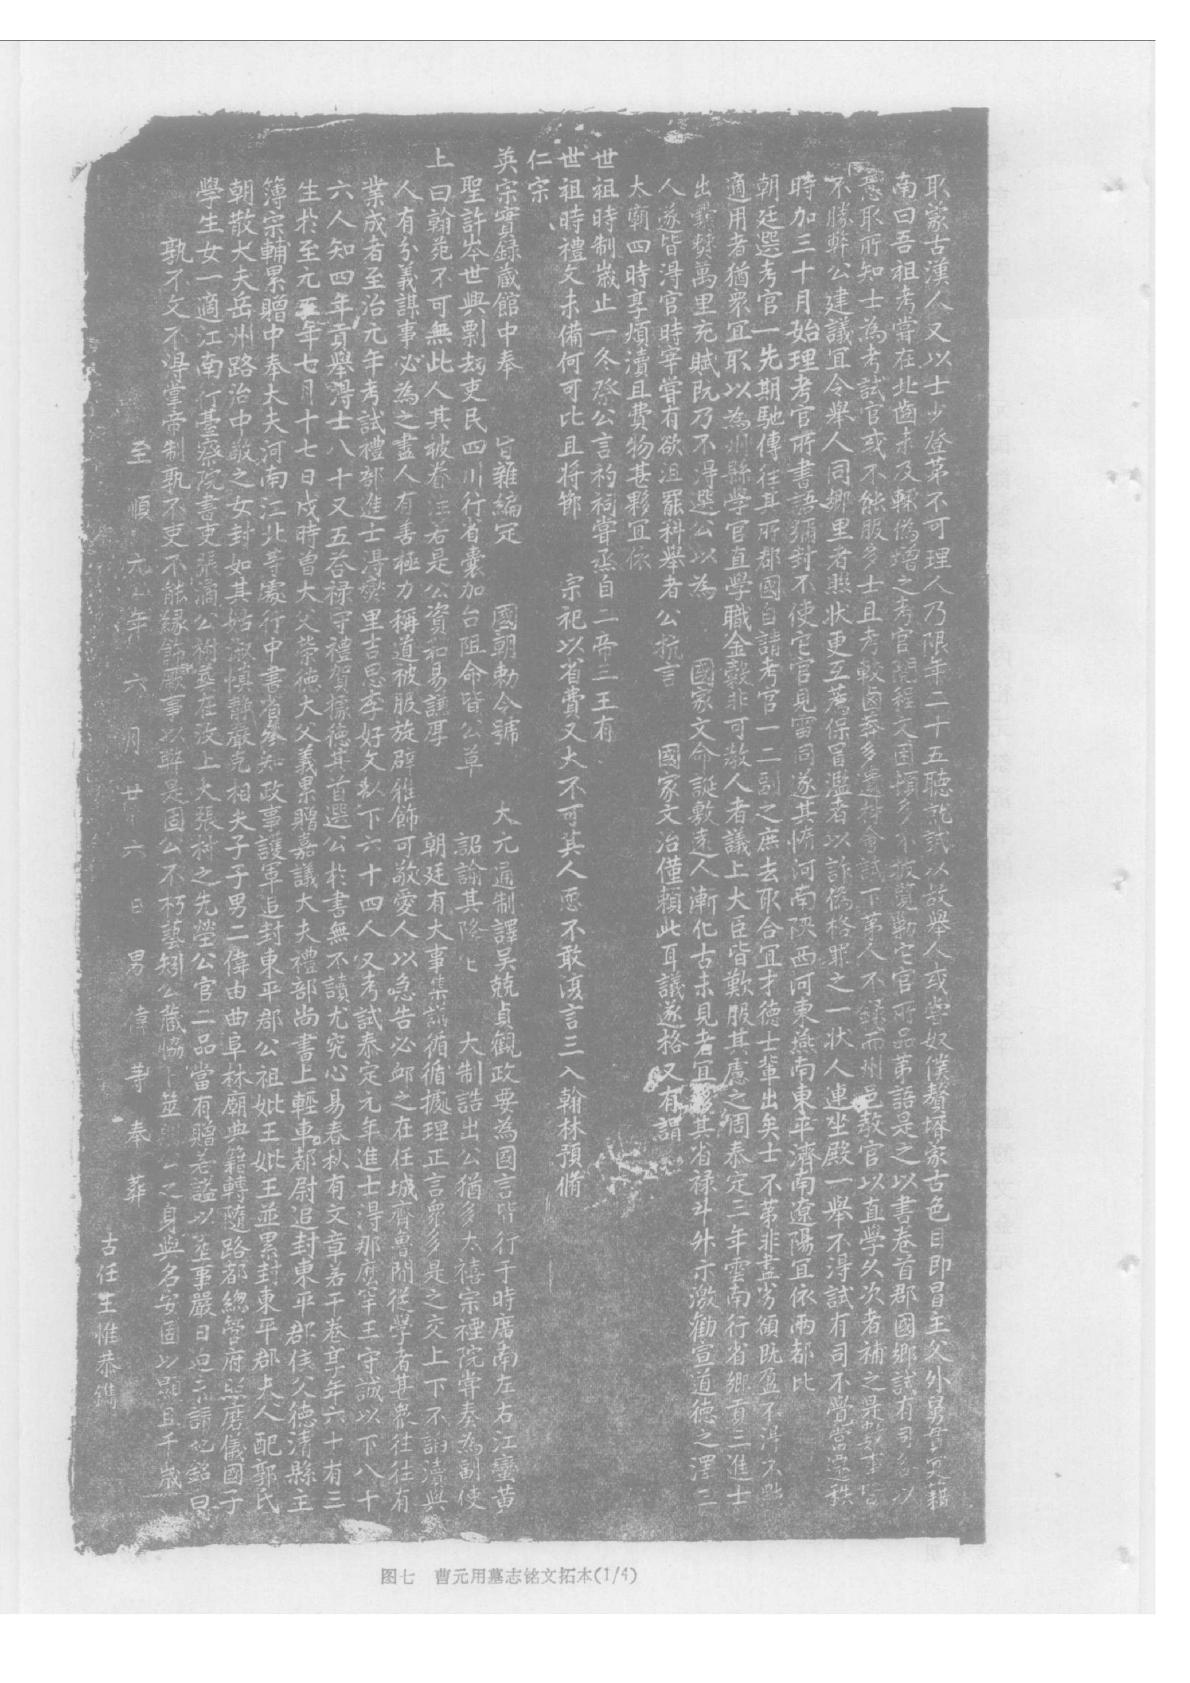 取蒙古漢人又以士少登第不可理人乃限年二十五聽就試以故舉人或嘗奴僕贅壻蒙古色目即冒王父外舅貫宂籍
南曰吾祖考嘗在北齒未及輒偽增之考官閱程文困頓多不披覽勒它官所品第語是之以書卷首郡國鄉試有司多以
恩取所知士為考試官或不能服多士且考較鹵莽多遺材會試下第人不錄而州邑教官以直學久次者補之是數事皆
不勝弊公建議宜令舉人同鄉里者照狀更互薦保冒濫者以詐偽格罪之一狀人連坐殿一舉不得試有司不覺當還秩
時加三十月始理考官所書語彌封不使它官見雷同遂其情河南陝西河東燕南東平濟南遼陽宜依兩都比
朝廷選考官一先期馳傳往其所郡國自請考官一二副之庶去取合宜才德士輩出矣士不第非盡劣額既盈不得不黜
適用者猶衆宜取以為州縣學官直學職金穀非可教人者議上大臣皆歎服其慮之周泰定三年雲南行省鄉貢三進士
出爨僰萬里充賦既乃不得選公以為 國家文命誕敷遠人漸化古未見者宜 其省祿斗升示激勸宣道德之澤二
人遂皆得官時宰嘗有欲沮罷科舉者公抗言 國家文治僅賴此耳議遂格又有謂
大廟四時享煩瀆且費物甚夥宜依
世祖時制歲止一冬祭公言礿祠嘗烝自二帝三王有
世祖時禮文未備何可比且将節 宗祀以省費又大不可其人恧不敢復言三入翰林預脩
仁宗
英宗實錄藏館中奉 旨雜編定 國朝勑令號 大元通制譯吴兢貞觀政要為國言皆行于時廣南左右江蠻黄
聖許岑世興剽刼吏民四川行省囊加台阻命皆公草 詔諭其降它 大制誥出公猶多太禧宗禋院嘗奏為副使
上曰翰苑不可無此人其被眷注若是公資和易謙厚 朝廷有大事集議循循據理正言衆多是之交上下不諂瀆與
人有分義謀事必為之盡人有善極力稱道被服旋辟雅飾可敬愛人以急告必卹之在任城齊魯間從學者甚衆往往有
業成者至治元年考試禮部進士得燮里吉思李好文以下六十四人又考試泰定元年進士得那麼罕王守誠以下八十
六人知四年貢舉得士八十又五荅祿守禮贺據德其首選公於書無不讀尤究心易春秋有文章若干卷享年六十有三
生於至元五年七月十七日戌時曾大父榮德大父義累贈嘉議大夫禮部尚書上輕車都尉追封東平郡侯父德清縣主
簿宗輔累贈中奉大夫河南江北等處行中書省參知政事護軍追封東平郡公祖妣王妣王並累封東平郡夫人配郭氏
朝散大夫岳州路治中敬之女封如其姑淑慎靜嚴克相夫子子男二偉由曲阜林廟典籍轉隨路都總管府照磨儀國子
學生女一適江南行臺察院書吏張 公祔葬在汶上大張村之先塋公官二品當有贈若謚以塟事嚴日迫 請
銘曰
孰不文不得掌帝制孰不吏不能緣飭厥事以 是固公不朽藝 公藏 公之身與名安固以顯且千歲
至順元年六月廿六日男偉等奉葬
古任王惟恭鐫
图七 曹元用墓志铭文拓本(1/4)